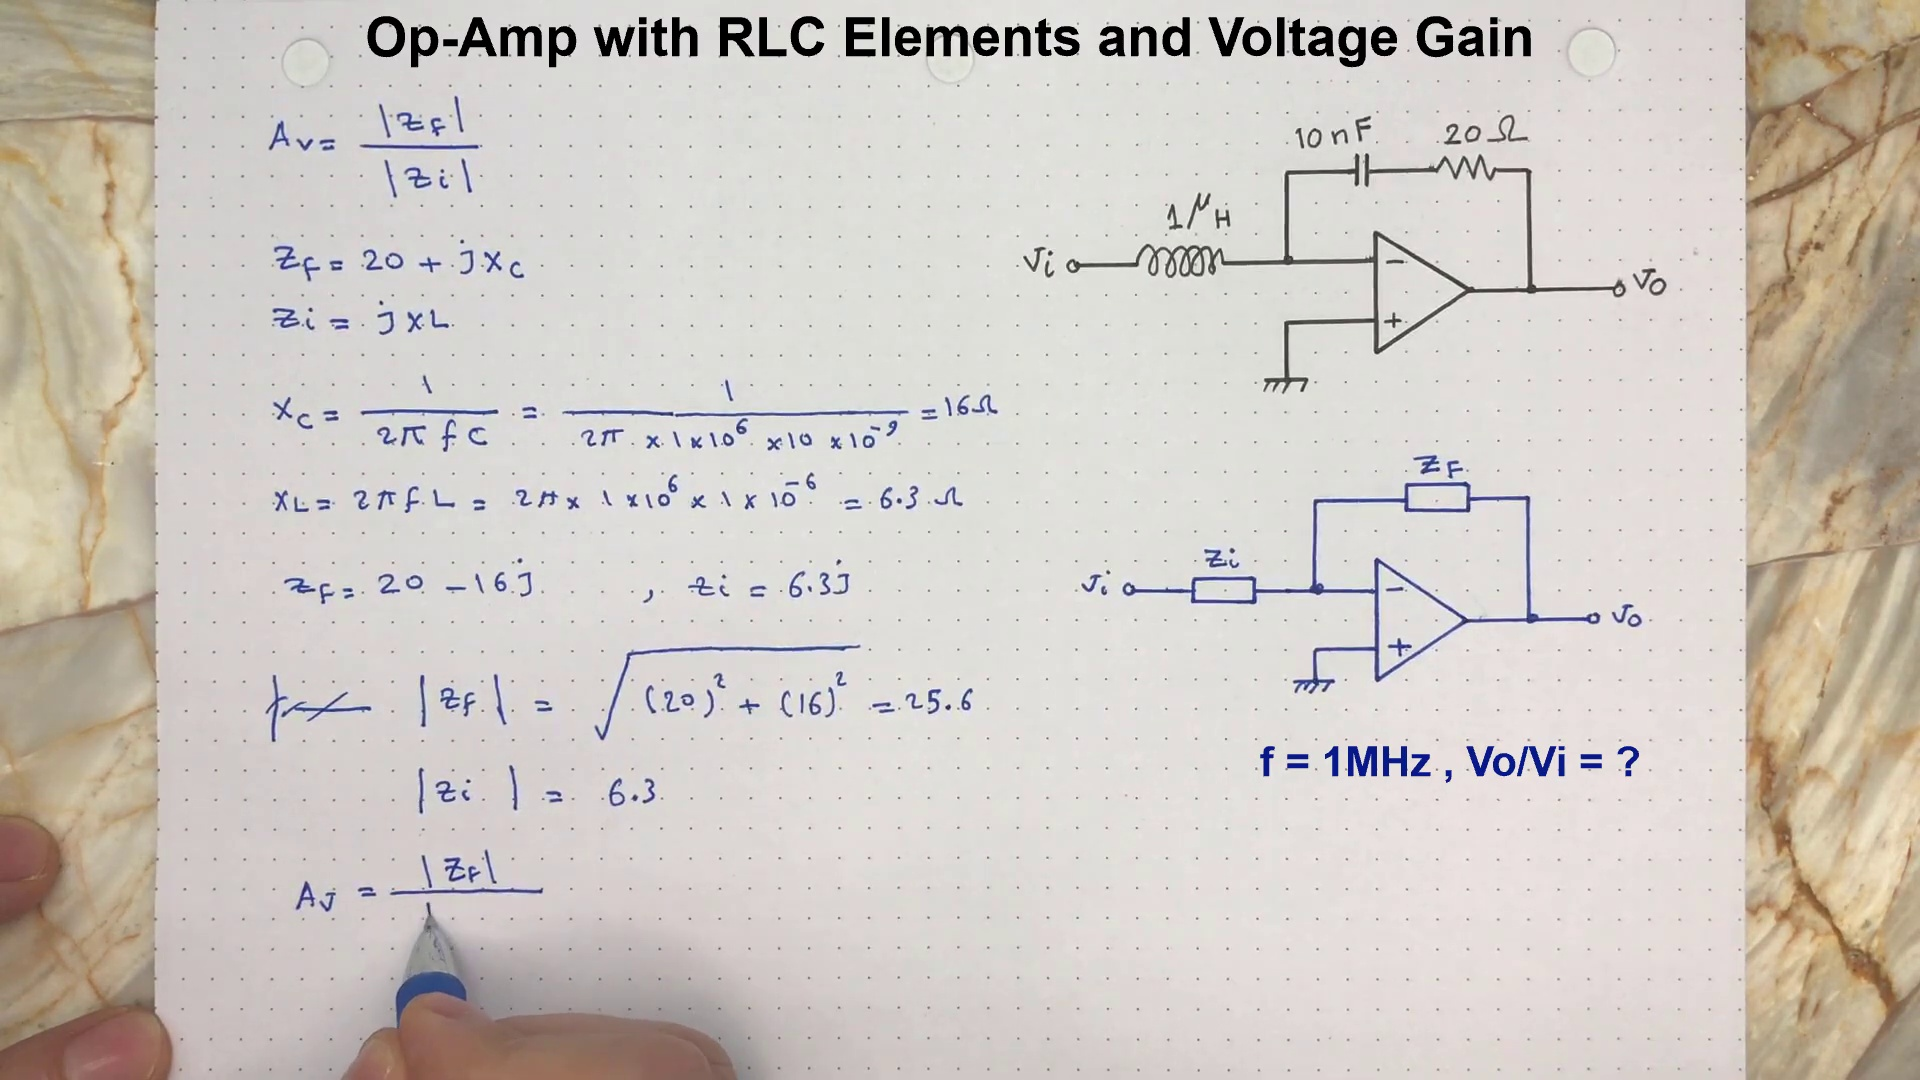 Op-Amp with RLC Elements and Voltage Gain
Av = |ZF| / |Zi|
ZF = 20 + jXC
Zi = jXL
XC = 1 / 2π f C = 1 / 2π × 1×10⁶ ×10 ×10⁻⁹ = 16Ω
XL = 2π f L = 2π × 1 ×10⁶ × 1 × 10⁻⁶ = 6.3 Ω
ZF = 20 - 16j , Zi = 6.3j
|ZF| = √(20)² + (16)² = 25.6
|Zi| = 6.3
Av = |ZF|
10nF 20Ω
1μH
Vi
-
+
Vo
ZF
Zi
Vi
-
+
Vo
f = 1MHz , Vo/Vi = ?